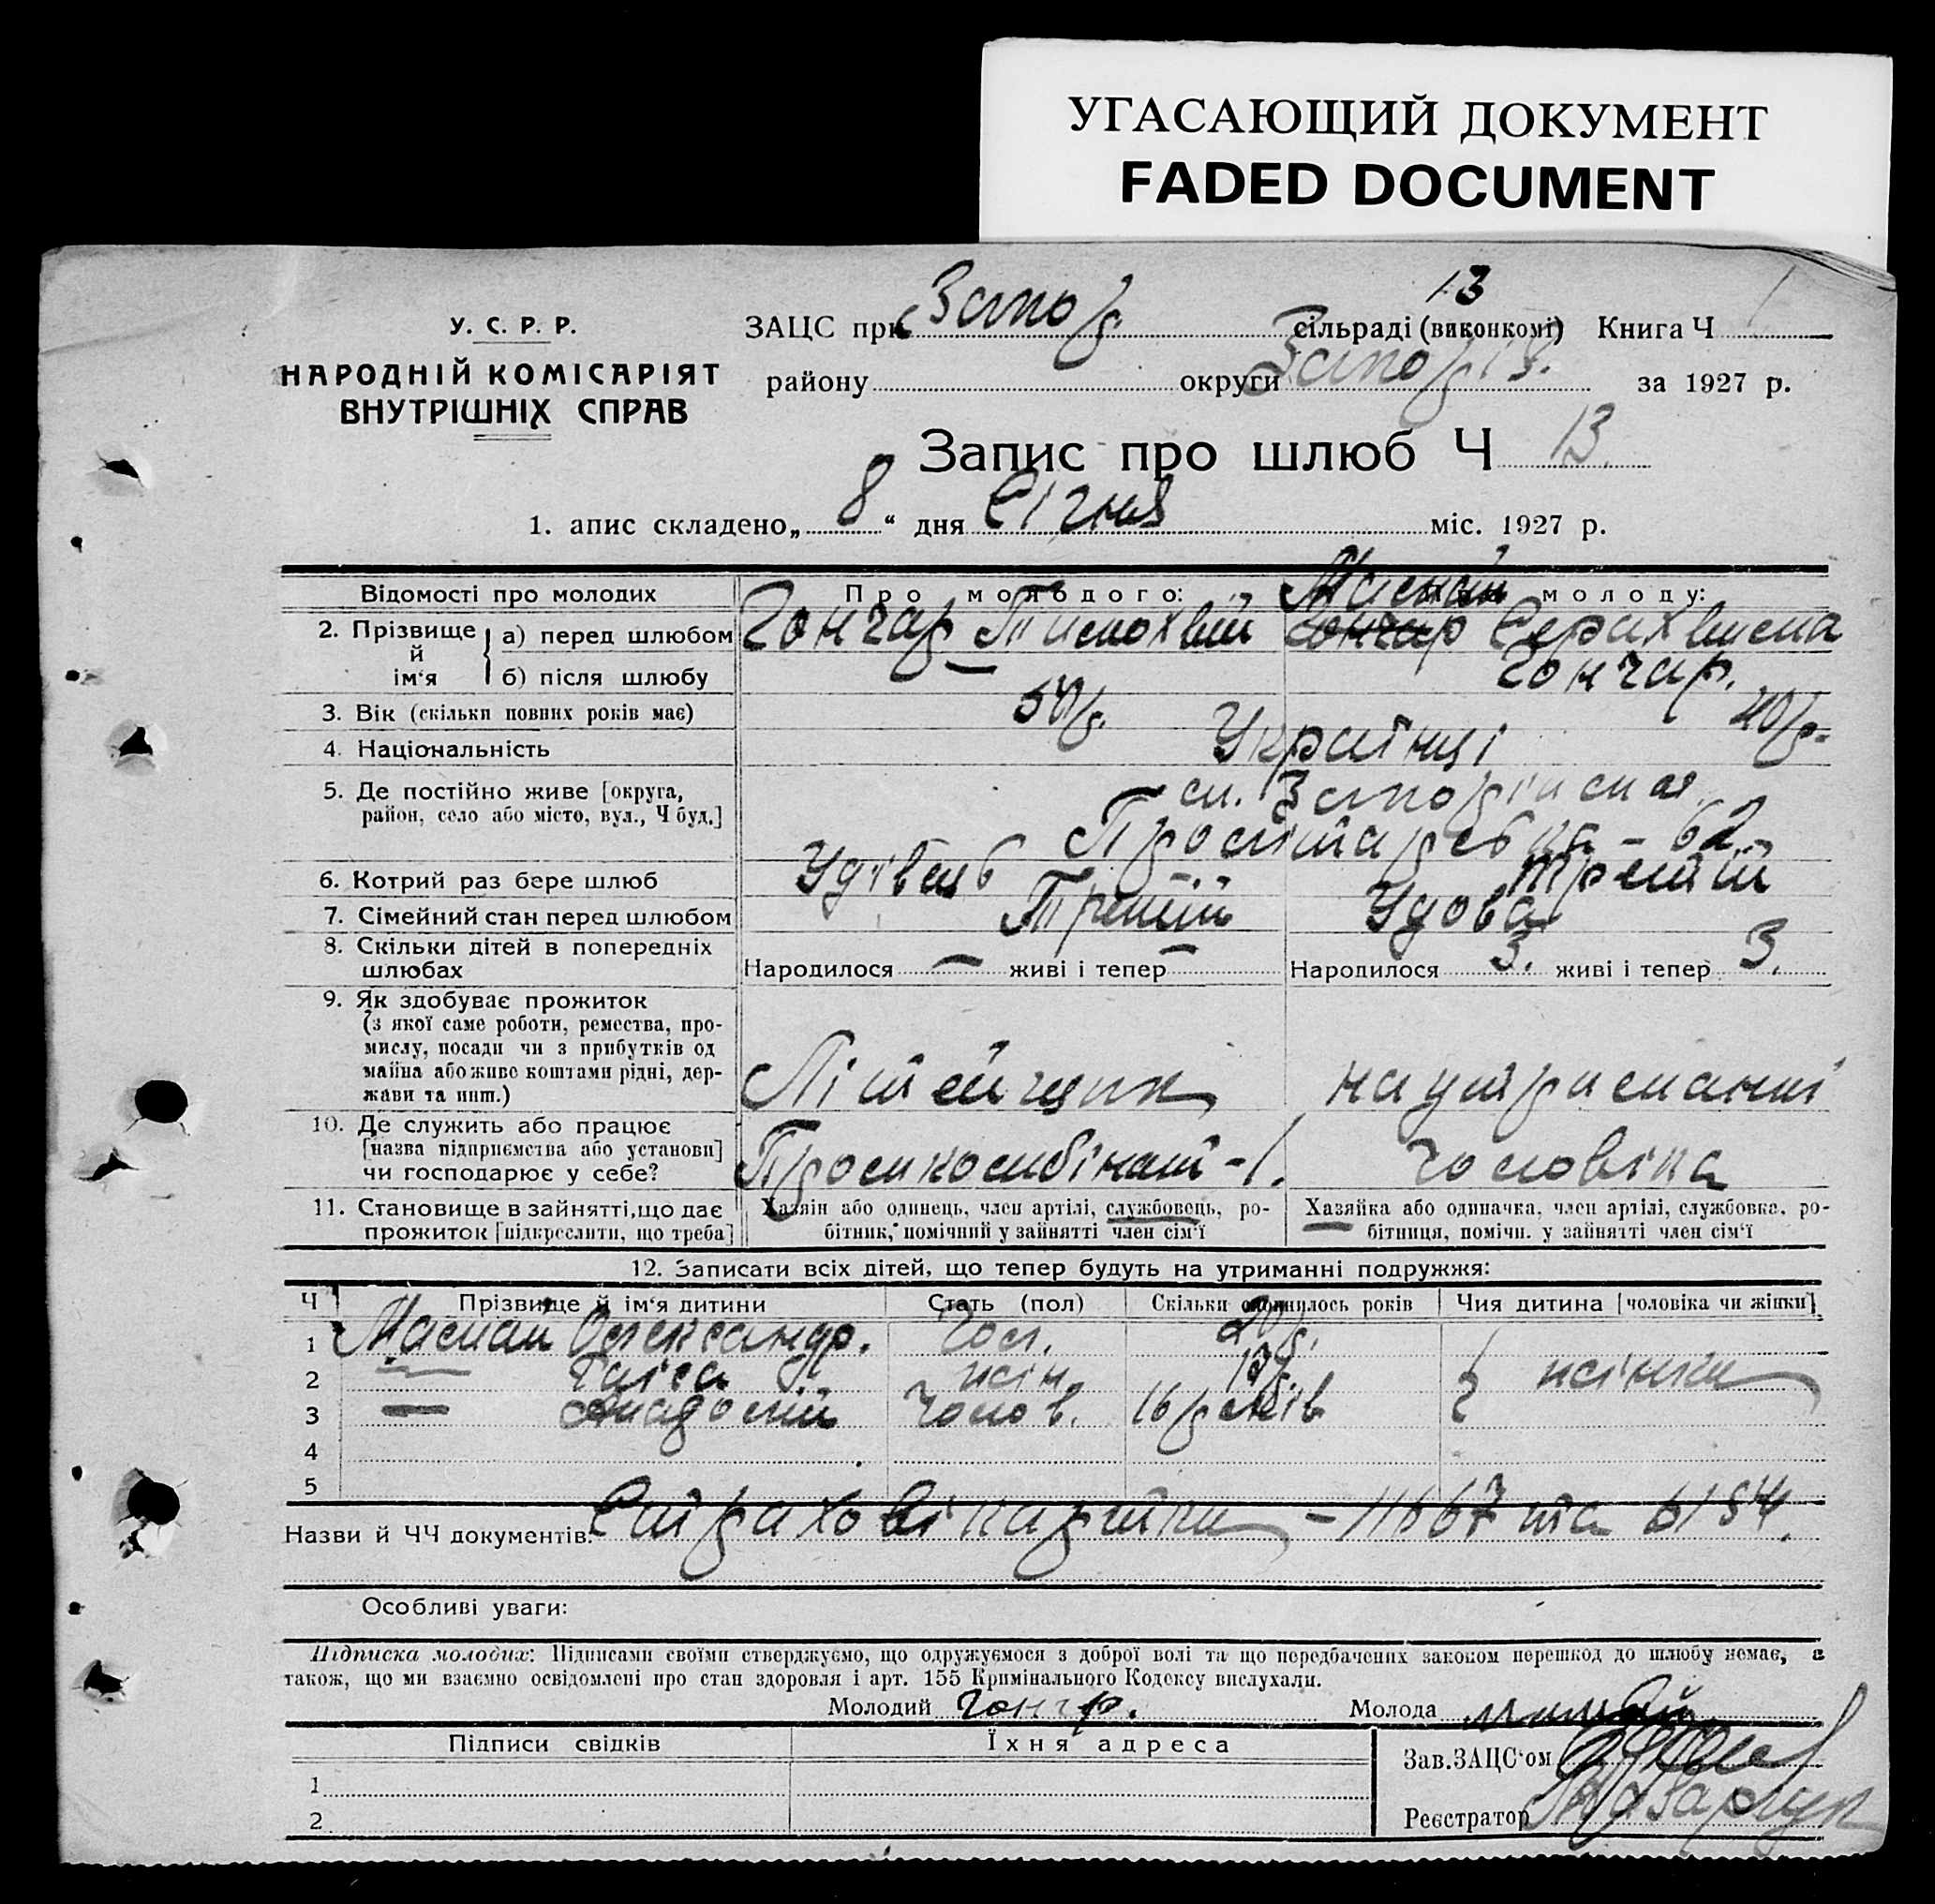 УГАСАЮЩИЙ ДОКУМЕНТ
FADED DOCUMENT
13
У. С. Р. Р.
НАРОДНІЙ КОМІСАРІЯТ
ВНУТРІШНІХ СПРАВ
ЗАЦС при Запор сільраді (виконкомі) Книга Ч 1
району округи Запоріз. за 1927 р.
Запис про шлюб Ч 13.
1. апис складено „ 8 “ дня Січня міс. 1927 р.
Відомості про молодих Про молодого: молоду:
2. Прізвище й ім‘я а) перед шлюбом Гончар Тимохвій Гончар Серахвима
б) після шлюбу — Гончар.
3. Вік (скільки повних років має) 40/р.
4. Національність Українці
5. Де постійно живе [округа, район, село або місто, вул., Ч буд.] 62
6. Котрий раз бере шлюб Удівець третій
7. Сімейний стан перед шлюбом Третій Удова
8. Скільки дітей в попередніх шлюбах Народилося — живі і тепер — Народилося 3. живі і тепер 3.
9. Як здобуває прожиток
(з якої саме роботи, ремества, промислу, посади чи з прибутків од майна або живе коштами рідні, держави та инш.) Літейщик на утриманні
10. Де служить або працює
[назва підприємства або установи]
чи господарює у себе? Промкомбінат-1. чоловіка
11. Становище в зайнятті, що дає прожиток [підкреслити, що треба] Хазяїн або одинець, член артілі, службовець, робітник, помічний у зайнятті член сім‘ї Хазяйка або одиначка, член артілі, службовка, робітниця, помічн. у зайнятті член сім‘ї
12. Записати всіх дітей, що тепер будуть на утриманні подружжя:
Ч Прізвище й ім‘я дитини Стать (пол) Скільки сповнилось років Чия дитина [чоловіка чи жінки]
1 Олександр. Чол. 20 р.
2 — Таіса жін. жінки
3 — Чолов. 16 р
4
5
Назви й ЧЧ документів: Страхові картки – 11667 та 6154.
Особливі уваги:
Підписка молодих: Підписами своїми стверджуємо, що одружуємося з доброї волі та що передбачених законом перешкод до шлюбу немає, а
також, що ми взаємно освідомлені про стан здоровля і арт. 155 Кримінального Кодексу вислухали.
Молодий Гончр. Молода
Підписи свідків Їхня адреса
Зав. ЗАЦС‘ом
1
Реєстратор
2